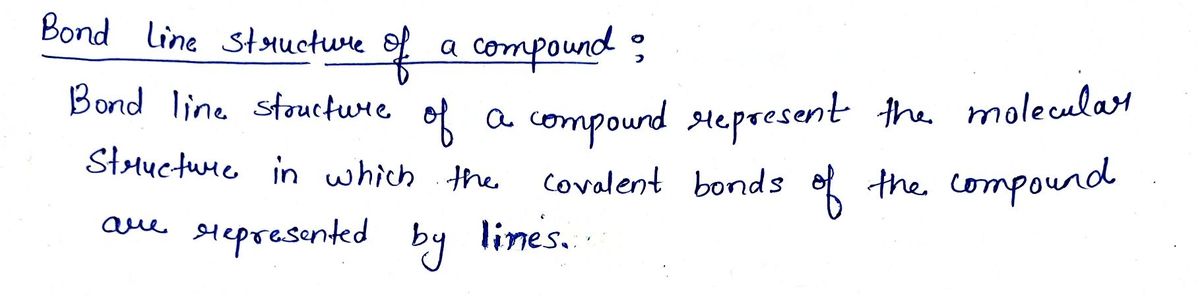 Bond line structure of a compound :
Bond line structure of a compound represent the molecular
structure in which the covalent bonds of the compound
are represented by lines.